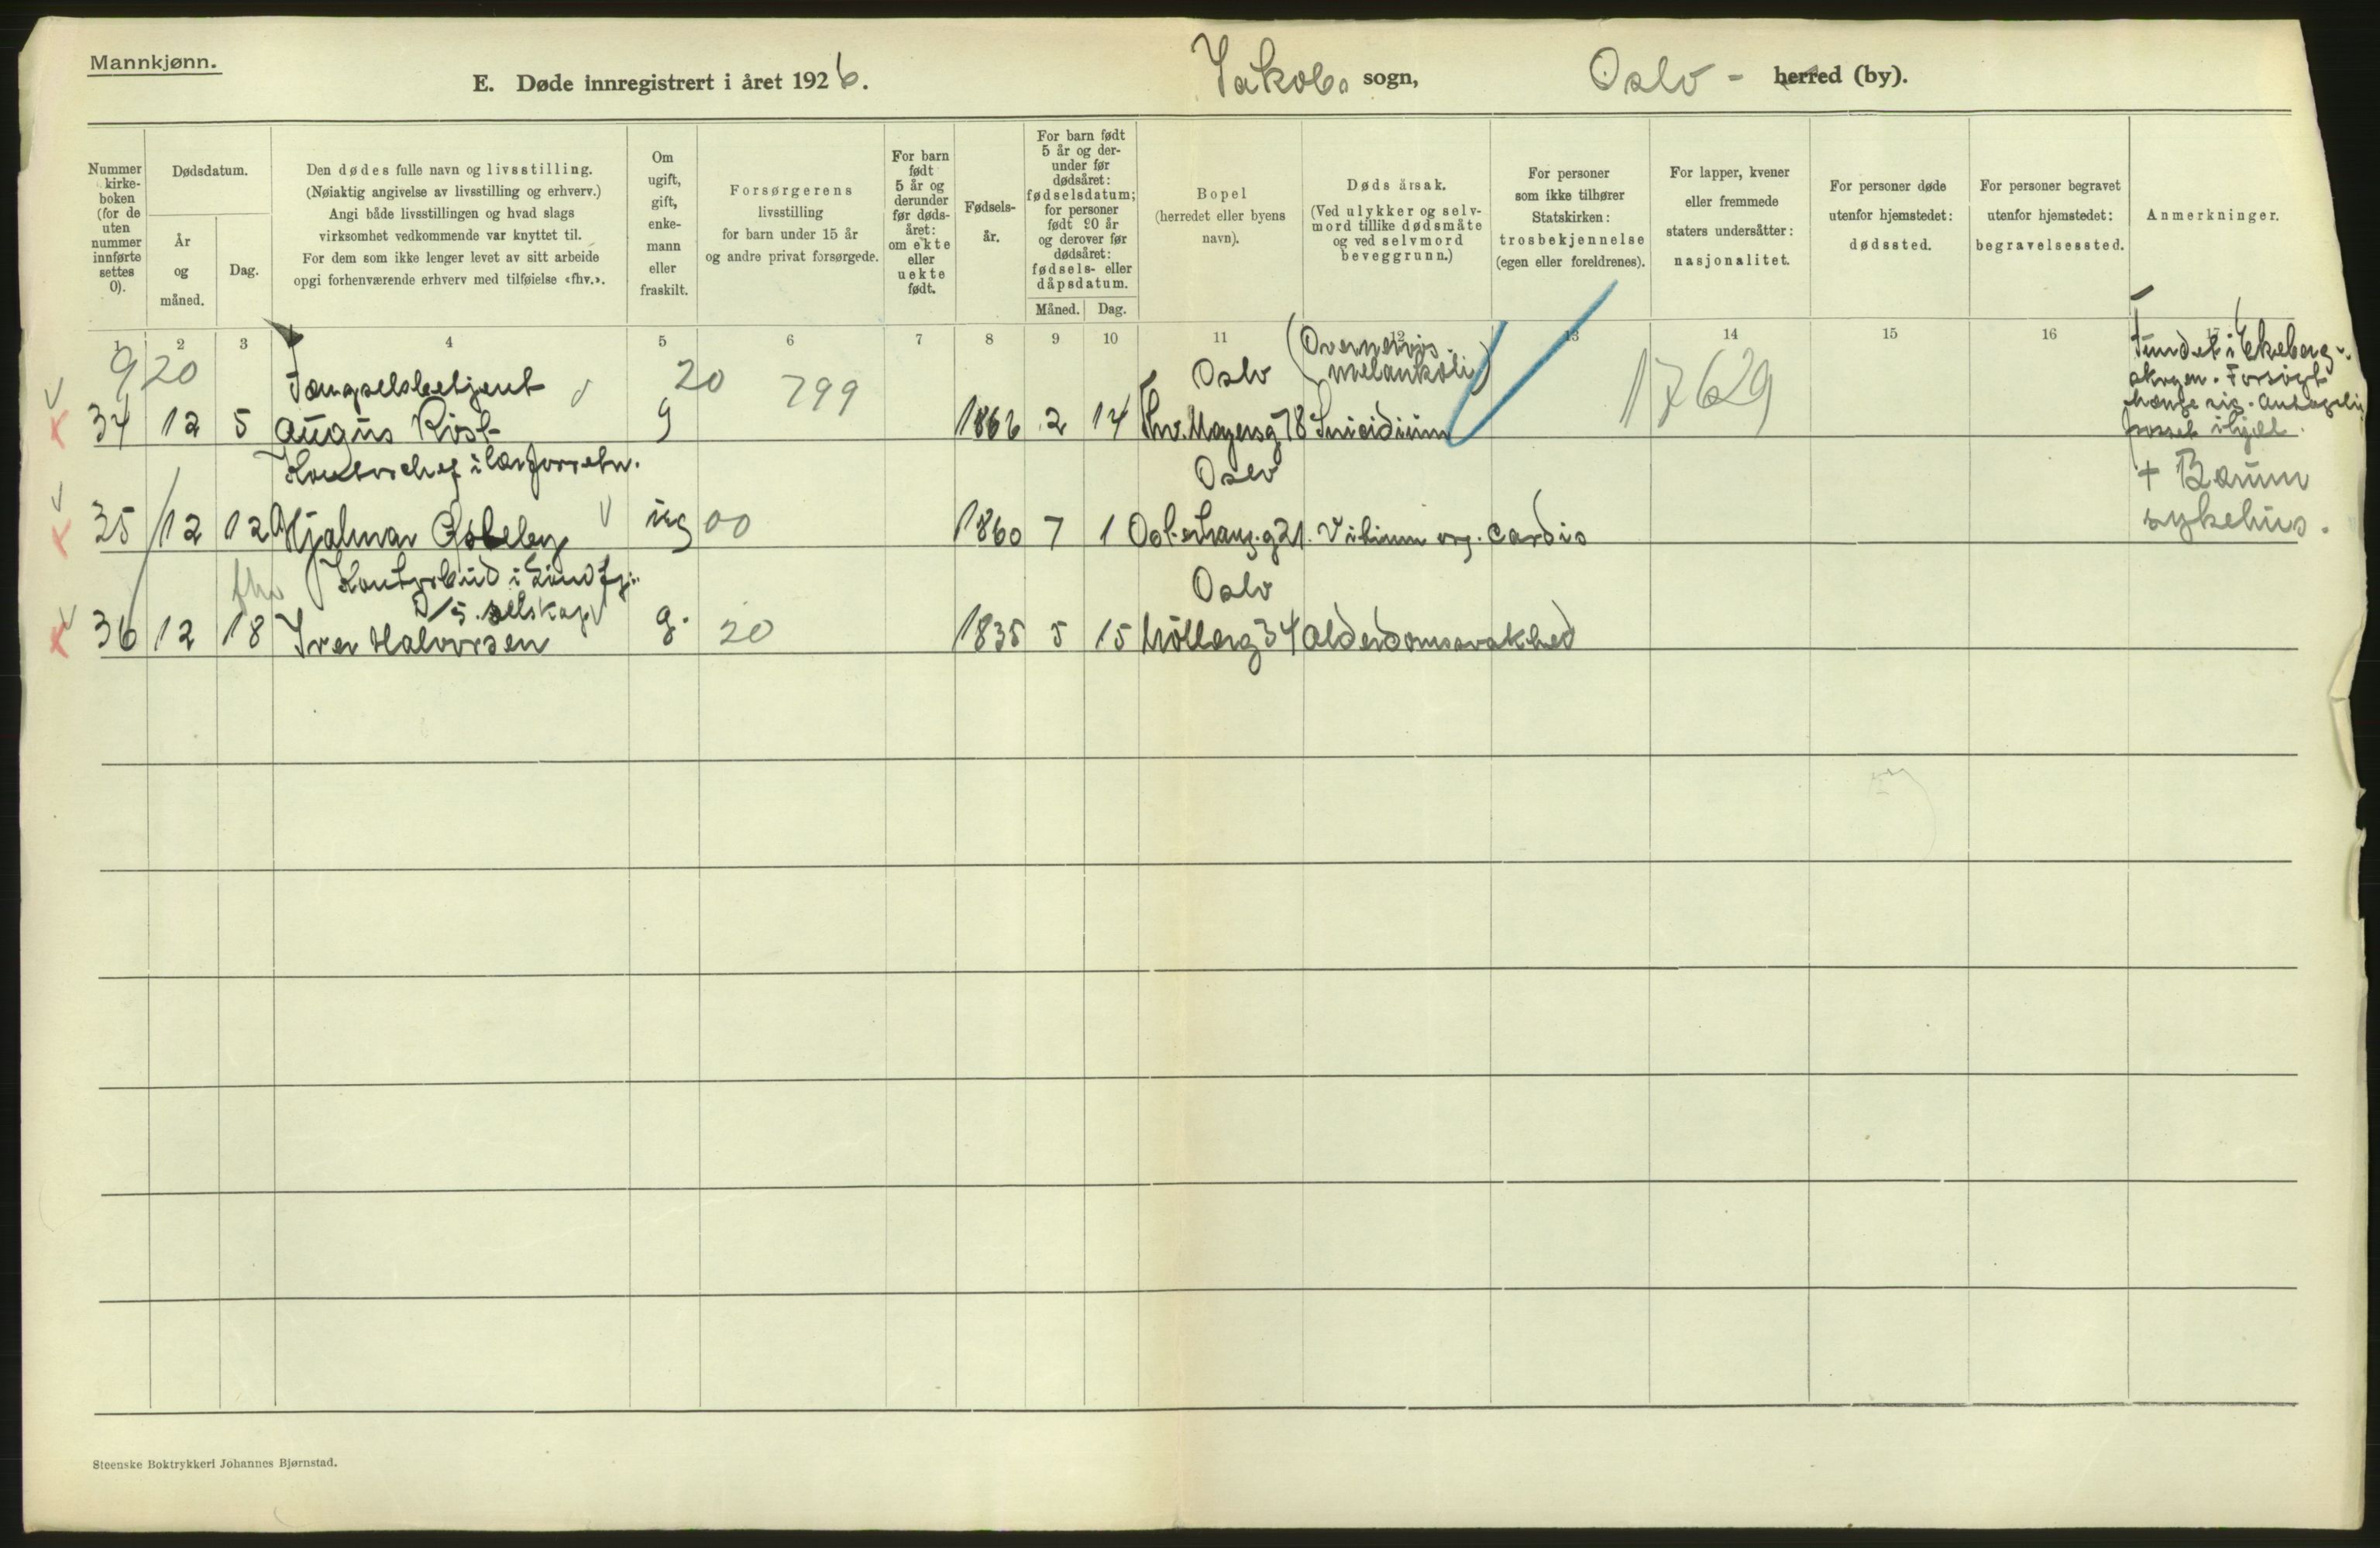 Mannkjønn.
E. Døde innregistrert i året 1926. Jakobs sogn, Oslo - herred (by).
Nummer kirke- boken (for de uten nummer innførte settes 0).
Dødsdatum.
År og måned.
Dag.
Den dødes fulle navn og livsstilling.
(Nøiaktig angivelse av livsstilling og erhverv.)
Angi både livsstillingen og hvad slags
virksomhet vedkommende var knyttet til.
For dem som ikke lenger levet av sitt arbeide
opgi forhenværende erhverv med tilføielse «fhv.».
Om ugift, gift, enke- mann eller fraskilt.
Forsørgerens
livsstilling
for barn under 15 år
og andre privat forsørgede.
For barn født 5 år og derunder før døds- året: om ekte eller uekte født.
Fødsels- år.
For barn født 5 år og der- under før dødsåret: fødselsdatum; for personer født 20 år og derover før dødsåret: fødsels- eller dåpsdatum.
Måned. Dag.
Bopel
(herredet eller byens
navn).
Døds årsak.
(Ved ulykker og selv-
mord tillike dødsmåte
og ved selvmord
beveggrunn.)
For personer
som ikke tilhører
Statskirken:
trosbekjennelse
(egen eller foreldrenes).
For lapper, kvener
eller fremmede
staters undersåtter:
nasjonalitet.
For personer døde
utenfor hjemstedet:
dødssted.
For personer begravet
utenfor hjemstedet:
begravelsessted.
Anmerkninger.
1 2 3 4 5 6 7 8 9 10 11 12 13 14 15 16
920 Fængselsbetjent 20 799 Oslo (Overnervøs. melankoli) 17629 Fundet i Ekeberg-
skogen. Forsøgt
hænge sig. Antagelig
frosset ihjel.
34 12 5 August Röst g 1866 2 14 Thv. Meyersg 78 Suicidium
Kontorchef i Oslo + Bærum
sykehus.
35 12 12 Hjalmar Østeby ug 00 1860 7 1 21. Vitium org. cordis
fhv Kontorbud i Oslo
D/S. selskap
36 12 18 Iver Halvorsen g. 20 1835 5 15 Möllerg 34 Alderdomssvakhed
Steenske Boktrykkeri Johannes Bjørnstad.